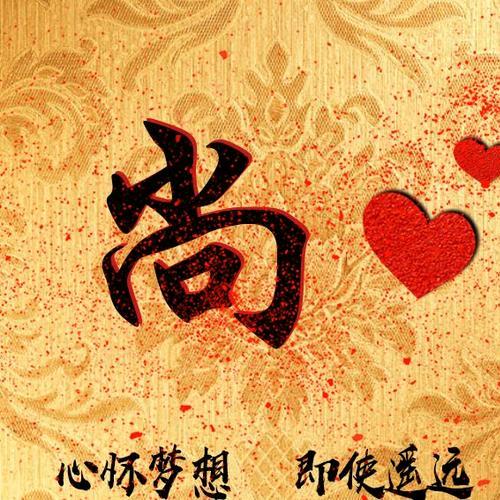 尚
心怀梦想 即使遥远